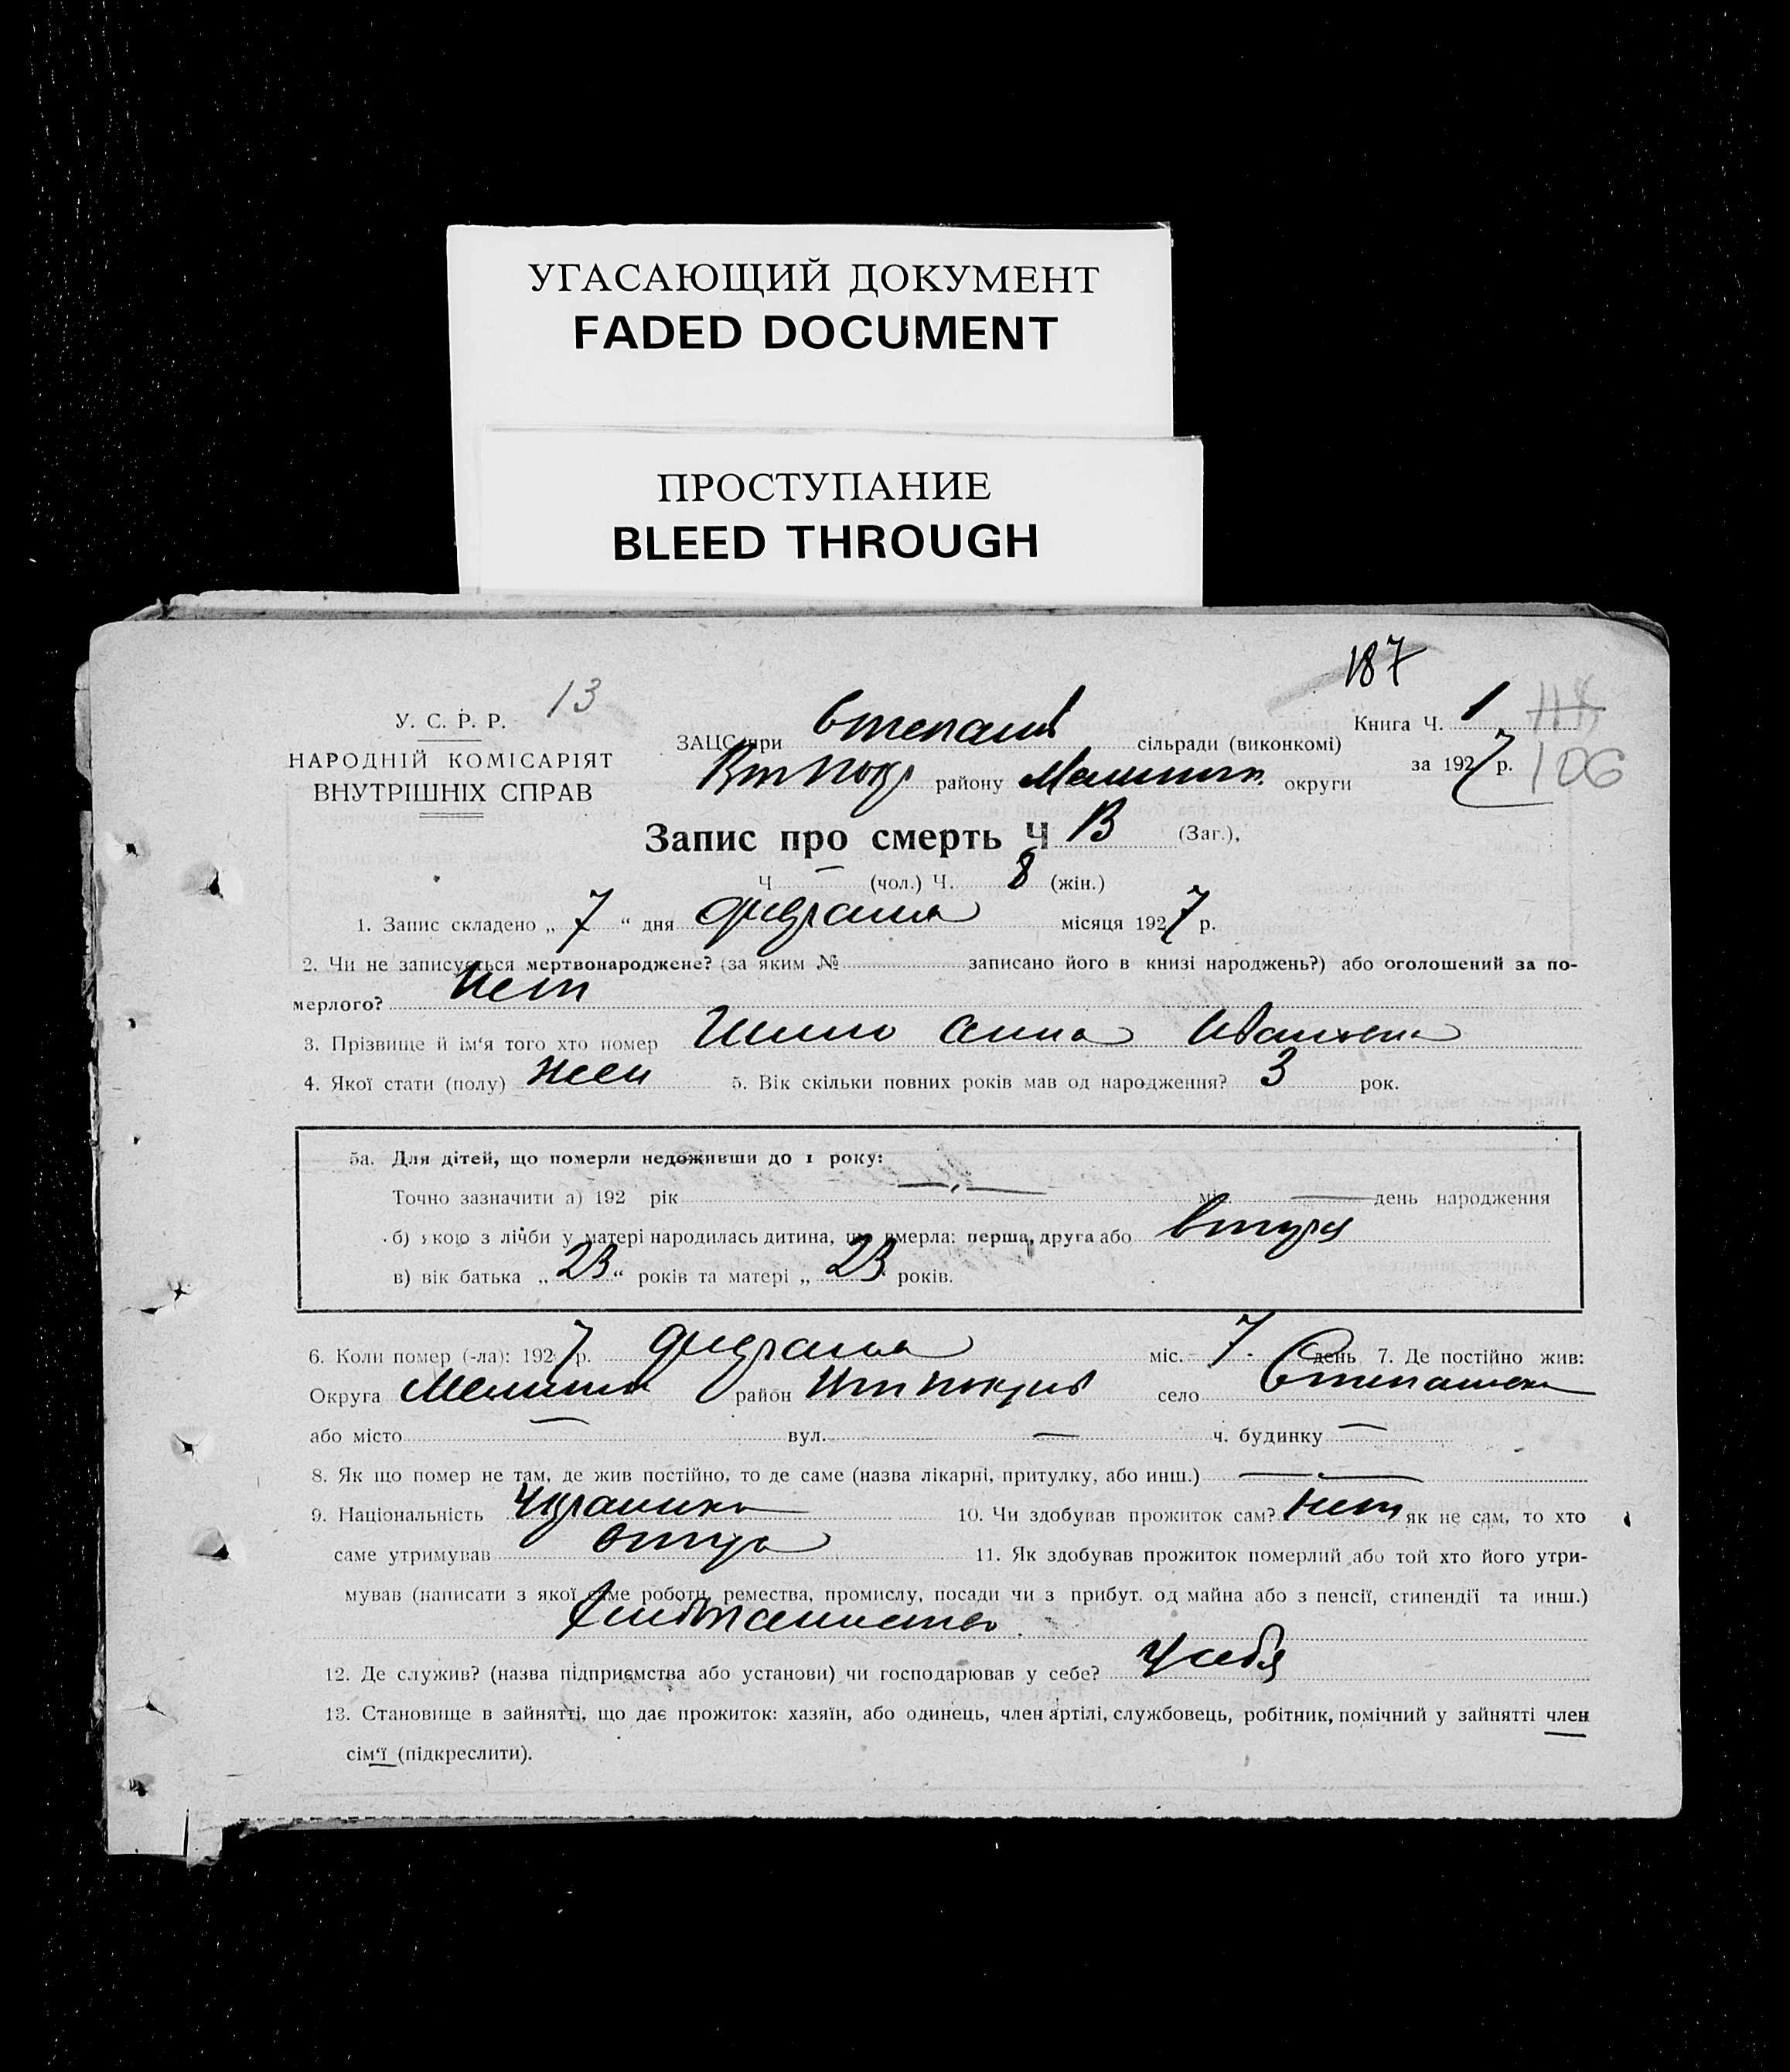 УГАСАЮЩИЙ ДОКУМЕНТ
FADED DOCUMENT
ПРОСТУПАНИЕ
BLEED THROUGH
187
13
У. С. Р. Р.
НАРОДНІЙ КОМІСАРІЯТ
ВНУТРІШНІХ СПРАВ
ЗАЦС при Степанів сільради (виконкомі)
району округи
Книга Ч. 1
за 1927 р.
106
Запис про смерть Ч 13 (Заг.),
Ч — (чол.) Ч. 8 (жін.)
1. Запис складено „ 7 “ дня февраля місяця 1927 р.
2. Чи не записується мертвонароджене? (за яким № записано його в книзі народжень?) або оголошений за по-
мерлого? Нет
3. Прізвище й ім‘я того хто помер Шило Анна Ивановна
4. Якої стати (полу) Жен 5. Вік скільки повних років мав од народження? 3 рок.
5а. Для дітей, що померли недоживши до 1 року:
Точно зазначити а) 192 рік міс. — день народження
б) якою з лічби у матері народилась дитина, що вмерла: перша, друга або вторя
в) вік батька „ 23 “ років та матері „ 23 років.
6. Коли помер (-ла): 1927 р. февраля міс. 7 день 7. Де постійно жив:
Округа район село
або місто — вул. — ч. будинку —
8. Як що помер не там, де жив постійно, то де саме (назва лікарні, притулку, або инш.) — —
9. Національність Украинка 10. Чи здобував прожиток сам? Нет як не сам, то хто
саме утримував отца 11. Як здобував прожиток померлий або той хто його утри-
мував (написати з якої саме роботи, ремества, промислу, посади чи з прибут. од майна або з пенсії, стипендії та инш.)
12. Де служив? (назва підприємства або установи) чи господарював у себе? У себя
13. Становище в зайнятті, що дає прожиток: хазяїн, або одинець, член артілі, службовець, робітник, помічний у зайнятті член
сім‘ї (підкреслити).